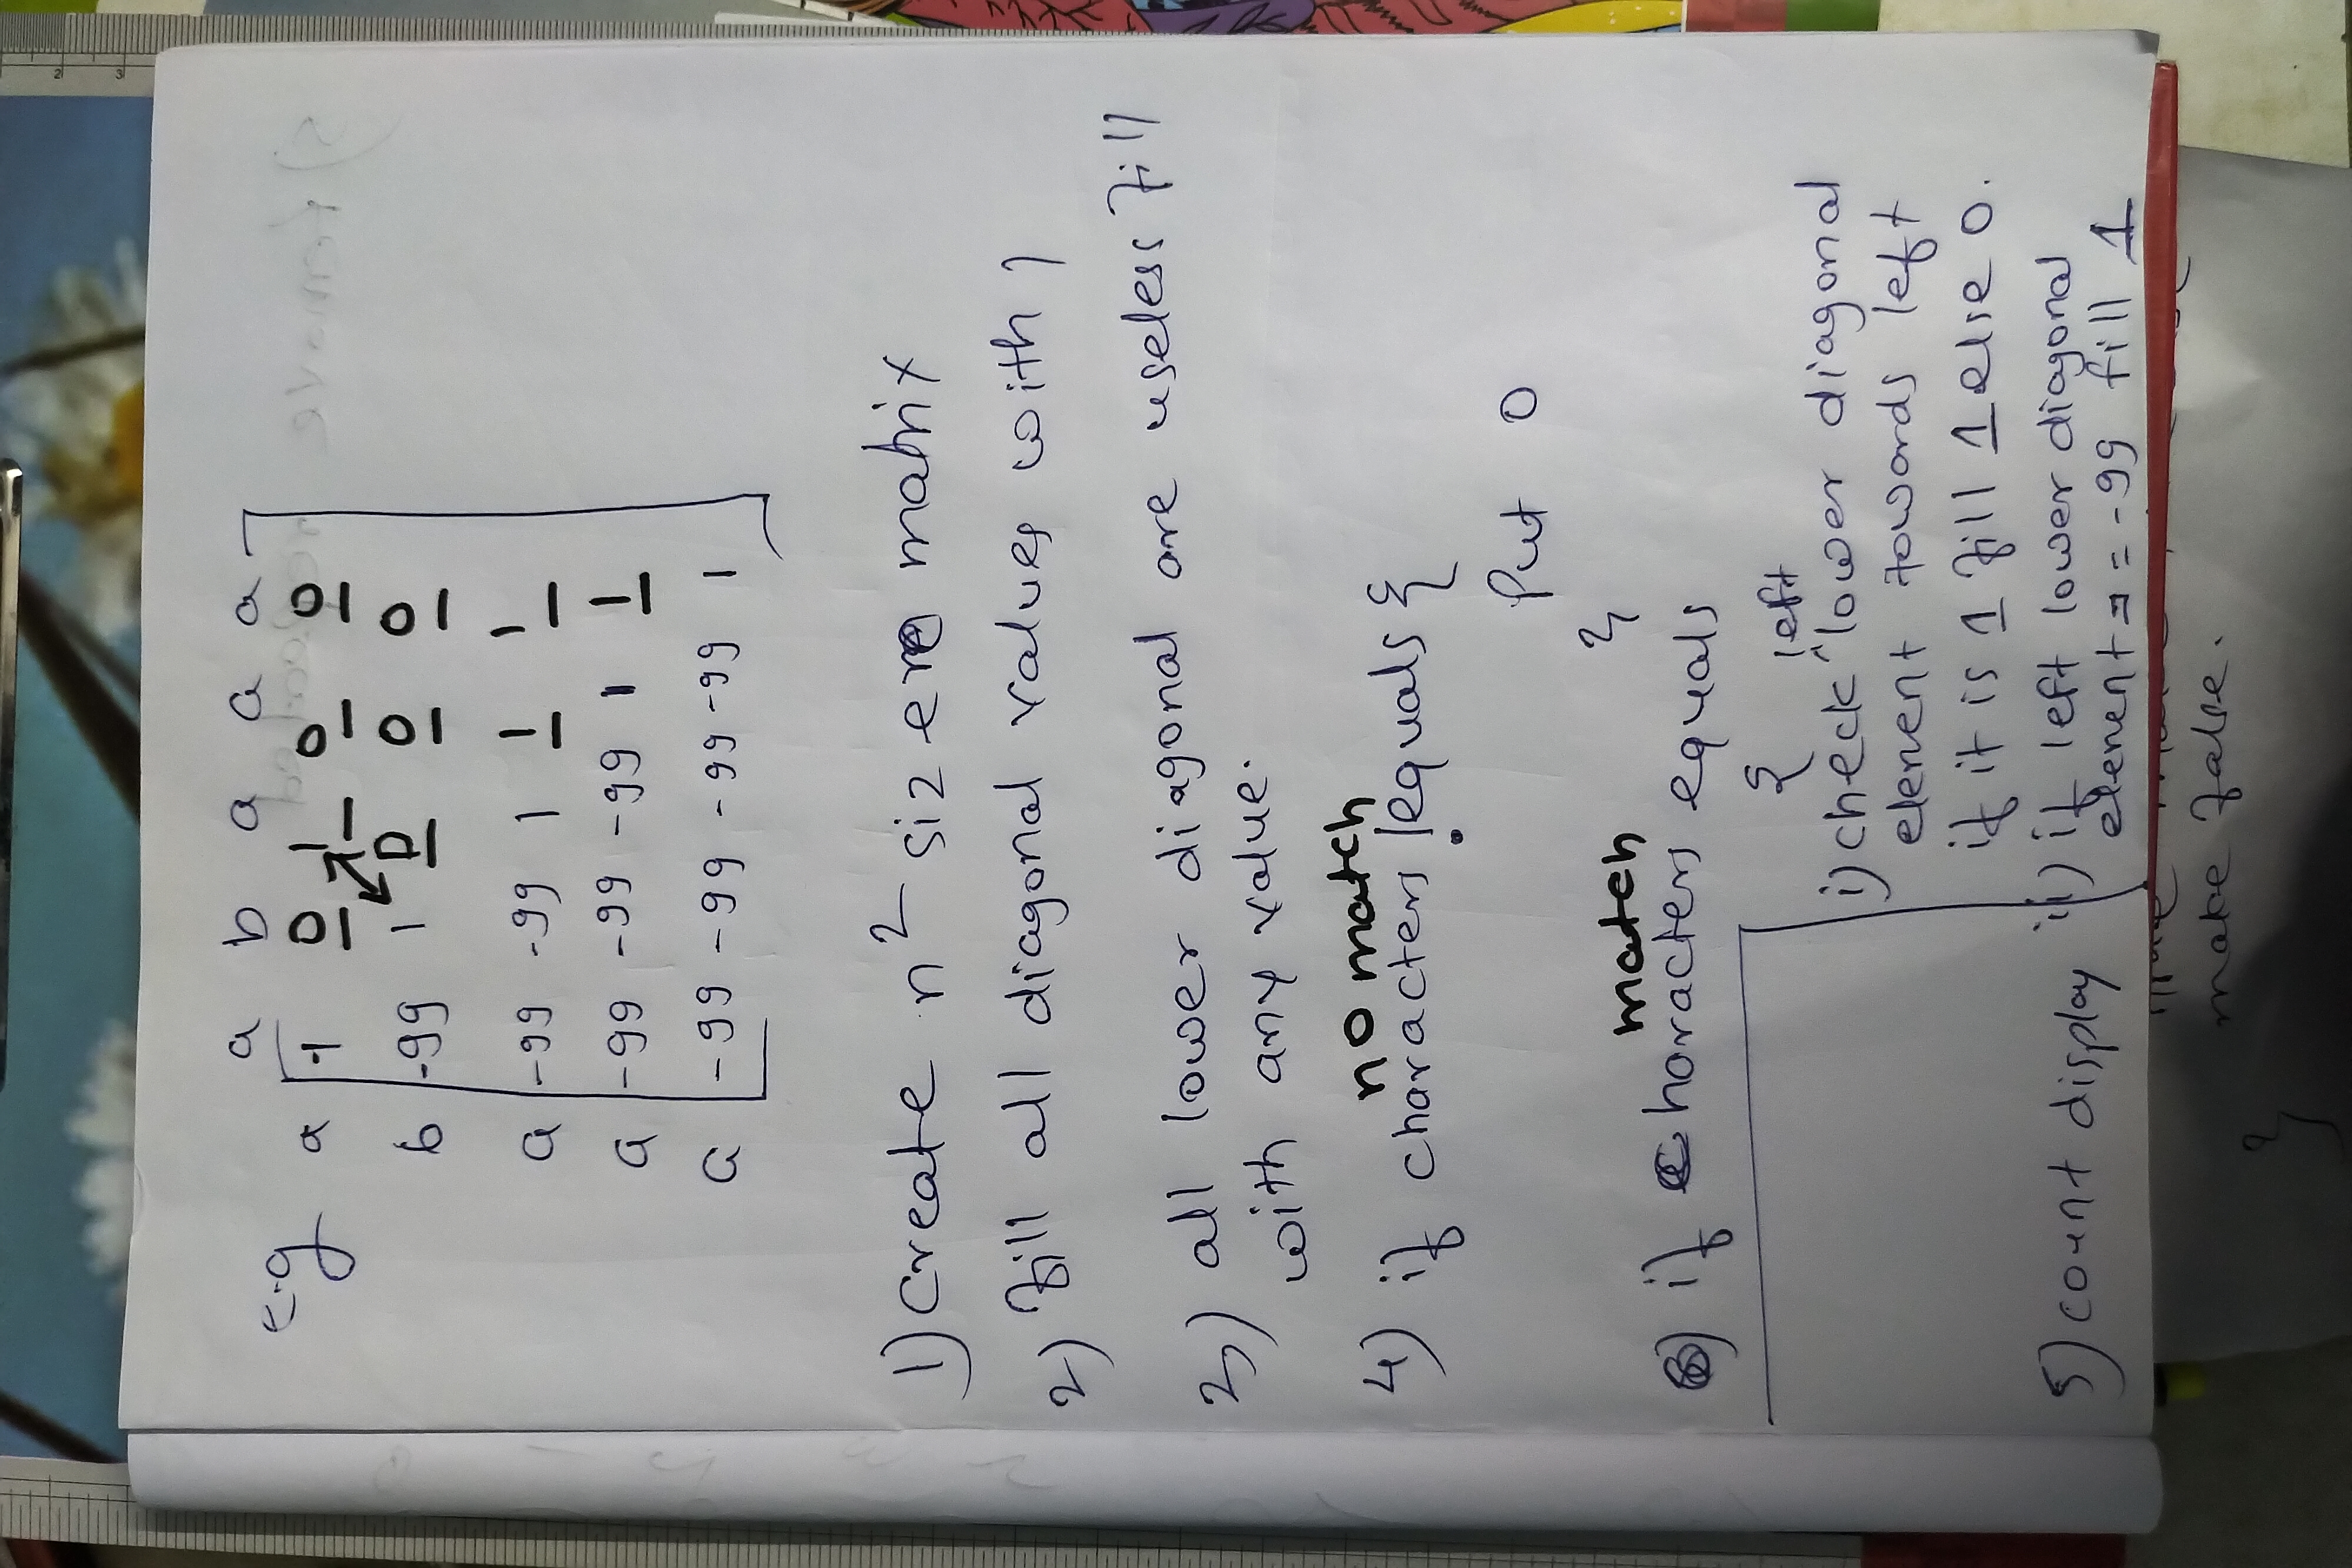 e.g
a b a a a
a -1 0 1 0 0
b -99 1 0 0 0
a -99 -99 1 1 1
a -99 -99 -99 1 1
a -99 -99 -99 -99 1
1) Create n² size matrix
2) fill all diagonal values with 1
3) all lower diagonal are useless fill
with any value.
no match
4) if characters !equals {
Put 0
}
match
6) if characters equals
{ left
i) check ^ lower diagonal
element towards left
if it is 1 fill 1 else 0.
ii) if left lower diagonal
element == -99 fill 1
5) count display
make false.
}